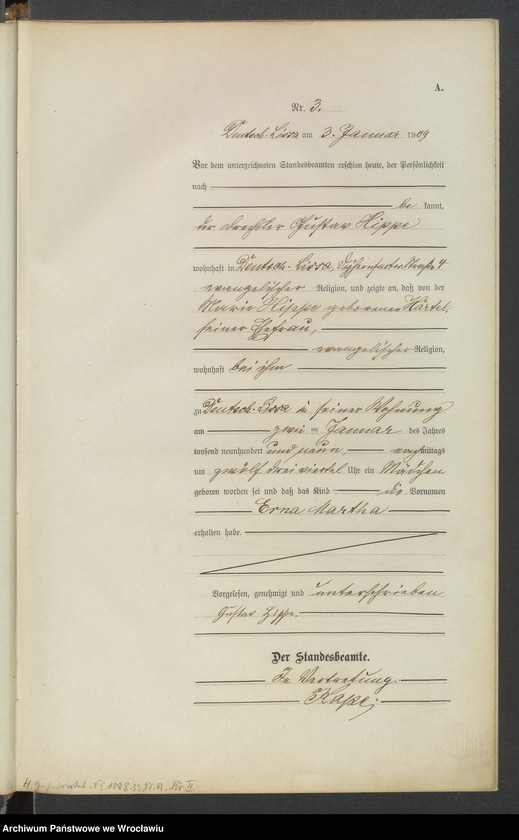 A.
Nr. 3.
Deutsch-Lissa am 3. Januar 1909
Vor dem unterzeichneten Standesbeamten erschien heute, der Persönlichkeit
nach
be kannt,
der Drechsler Gustav Hippe
wohnhaft in Deutsch-Lissa, Dyhernfurter Straße 4
evangelischer Religion, und zeigte an, daß von der
Marie Hippe geborenen Härtel,
seiner Ehefrau,
evangelischer Religion,
wohnhaft bei ihm
zu Deutsch-Lissa in seiner Wohnung
am zwei ten Januar des Jahres
tausend neunhundert und neun, nachmittags
um zwölf dreiviertel Uhr ein Mädchen
geboren worden sei und daß das Kind die Vornamen
Erna Martha
erhalten habe.
Vorgelesen, genehmigt und unterschrieben
Gustav Hippe.
Der Standesbeamte.
In Vertretung.
Archiwum Państwowe we Wrocławiu